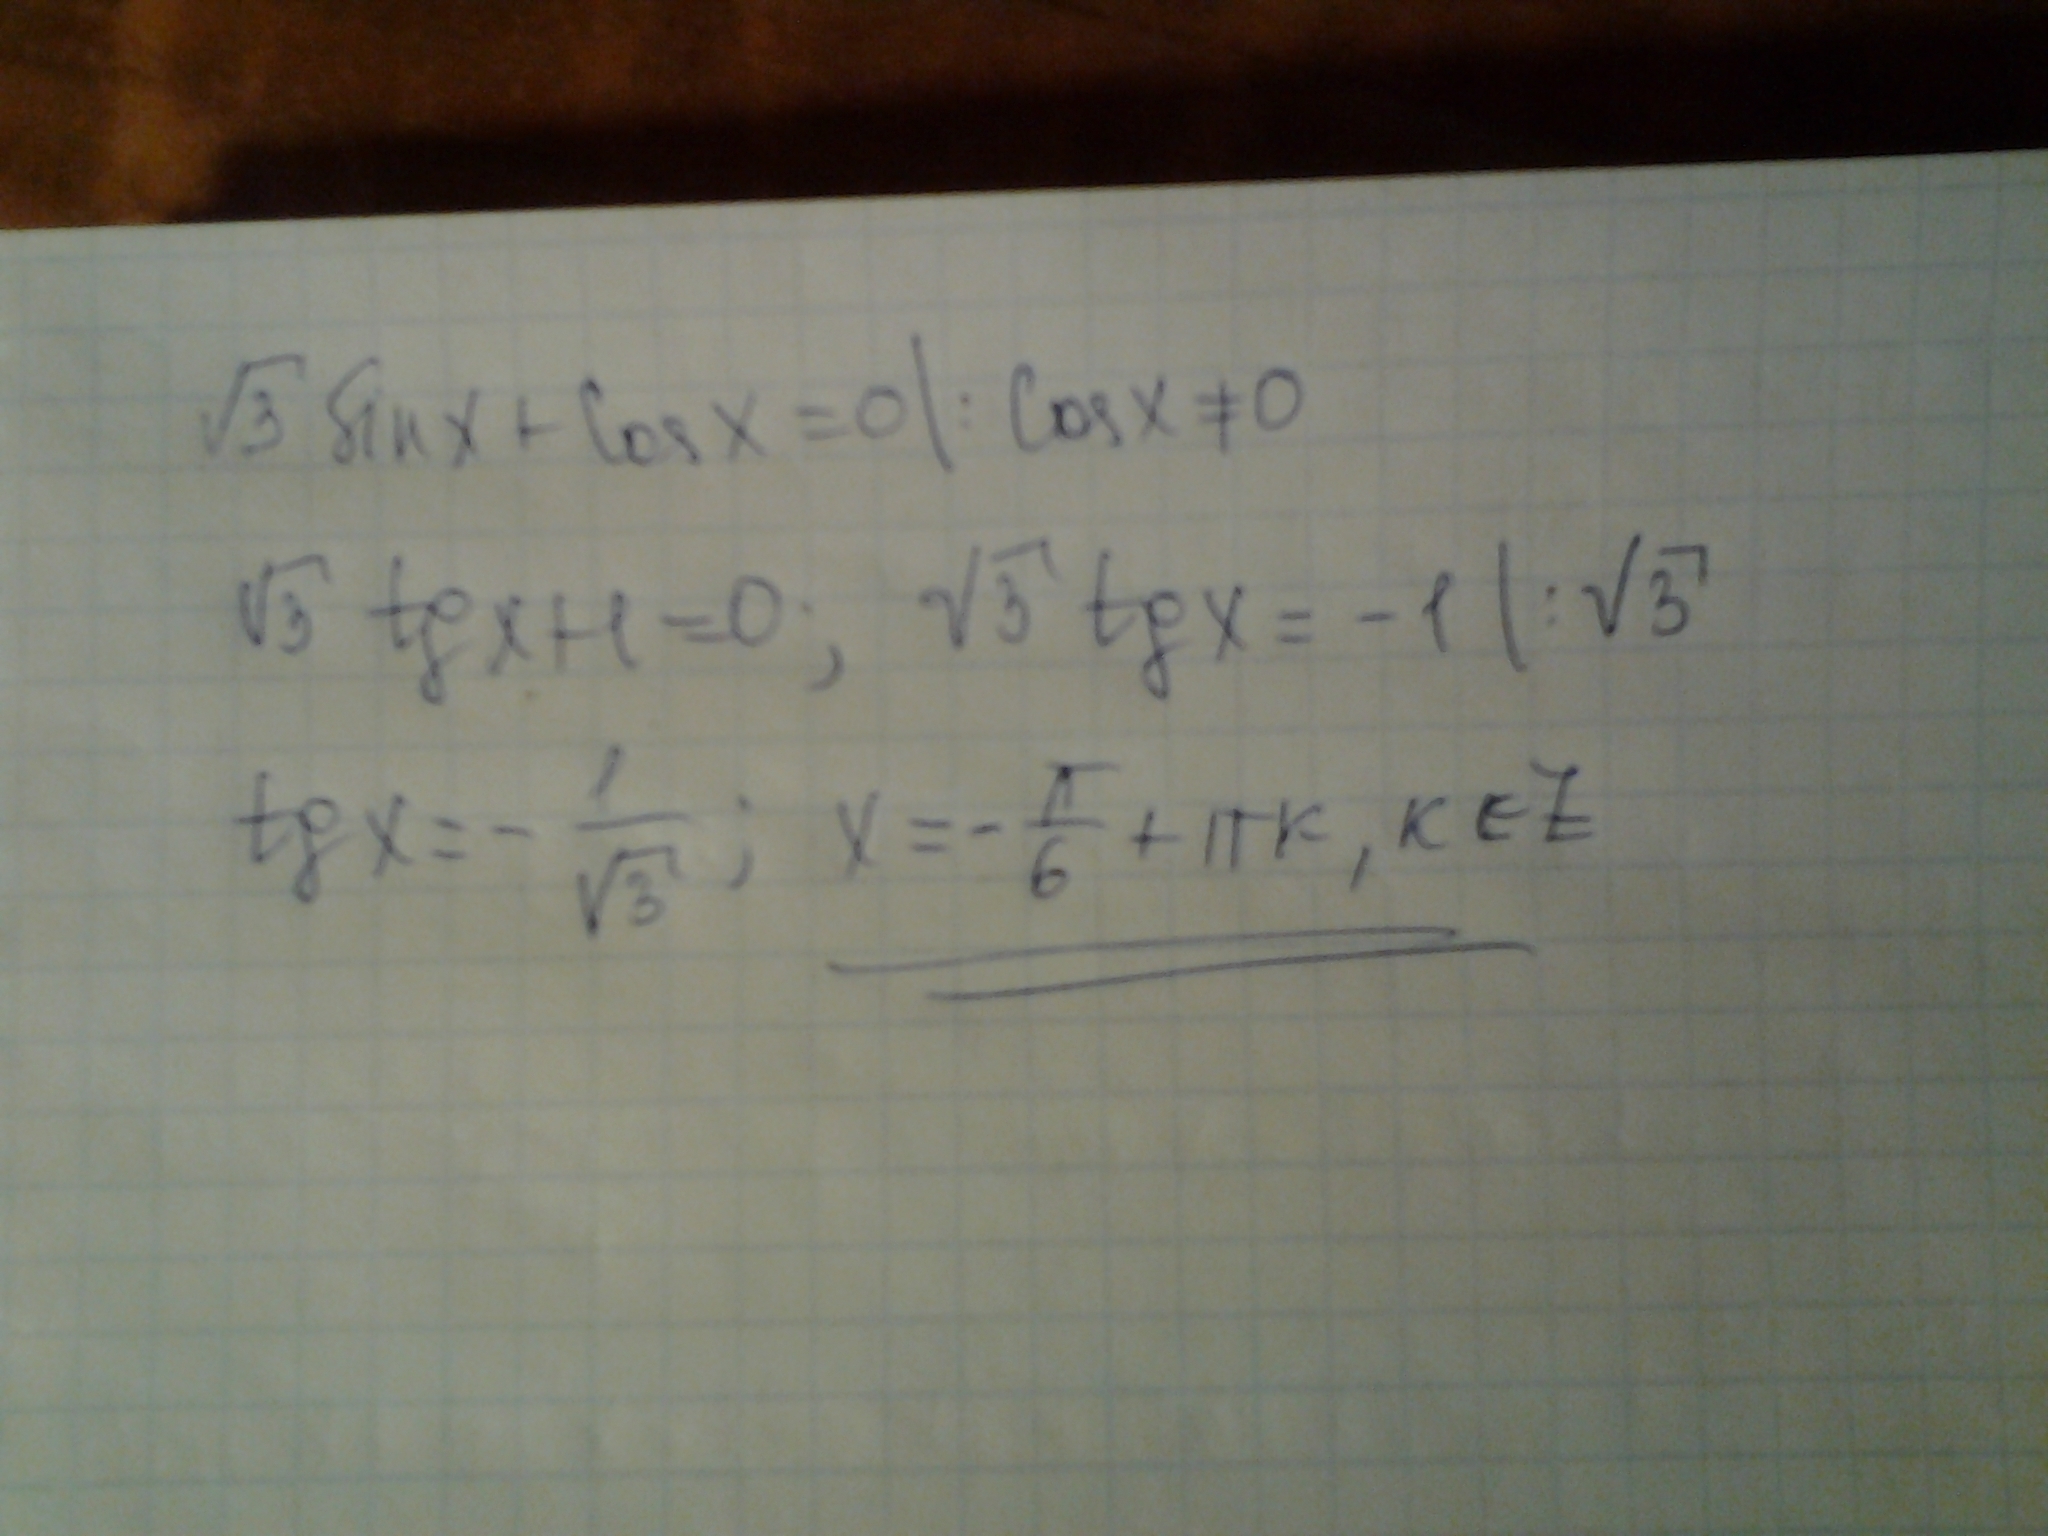 √3 sin x + cos x = 0 | : cos x ≠ 0
√3 tg x + 1 = 0; √3 tg x = -1 | : √3
tg x = - 1/√3; x = - π/6 + πк, к ∈ Z